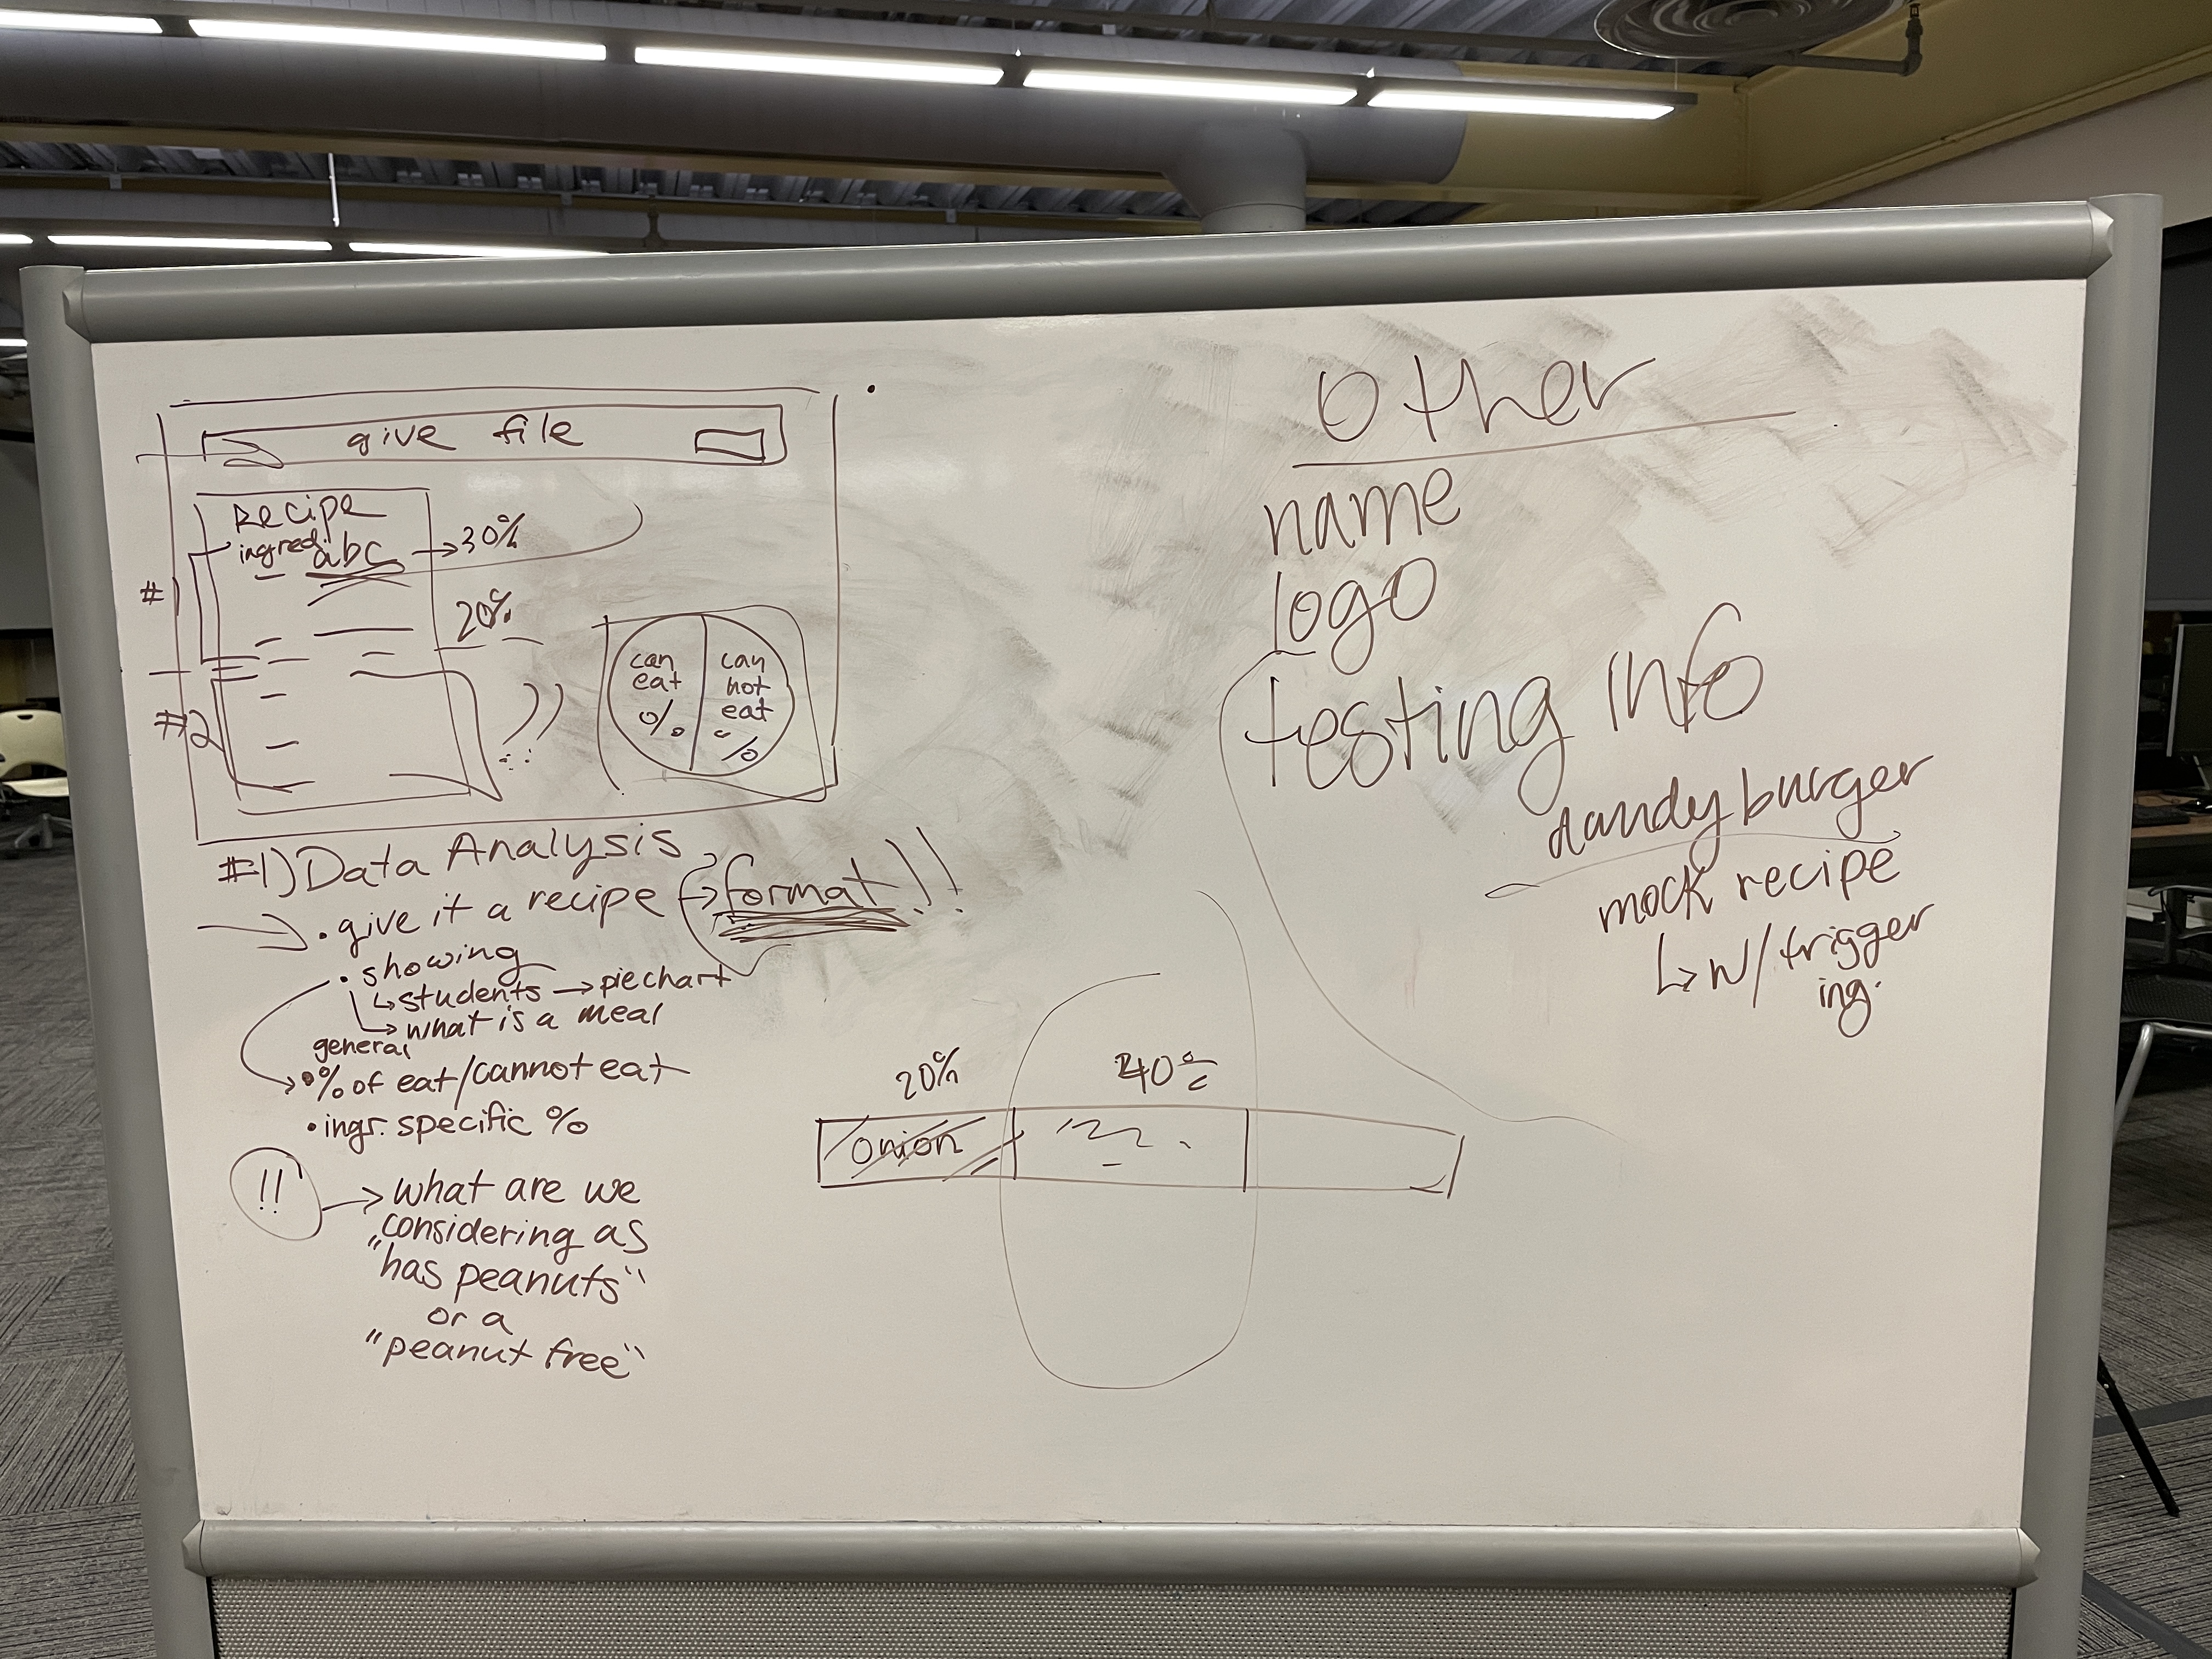 give file
Recipe
ingred. abc → 30%
#1
20%
#2
can eat %
can not eat %
#1) Data Analysis
• give it a recipe → format!!
• showing
↳ students → pie chart
↳ what is a meal
general
• % of eat/cannot eat
• ingr. specific %
!! → what are we
considering as
"has peanuts"
or a
"peanut free"
Other
name
logo
testing info
dandy burger
mock recipe
↳ w/ trigger
ing.
20%
40%
onion